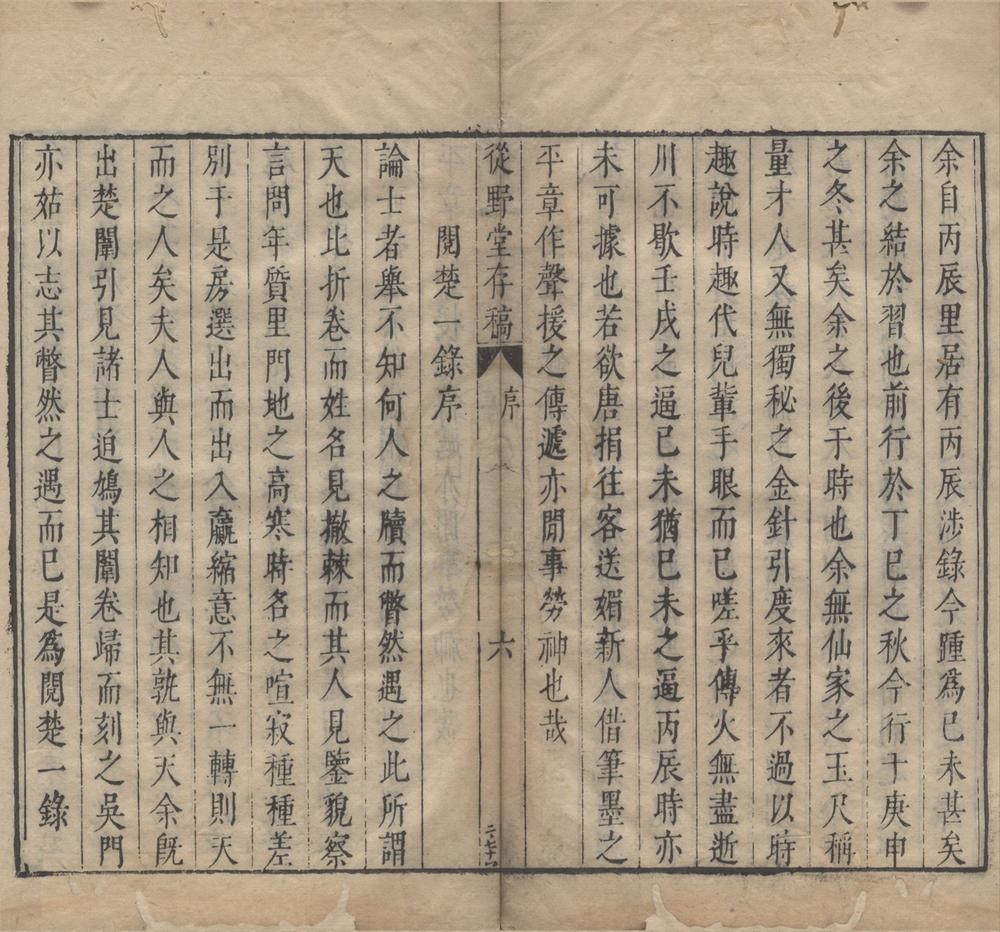 余自丙辰里居有丙辰涉錄今踵爲已未甚矣
余之結於習也前行於丁巳之秋今行于庚申
之冬甚矣余之後于時也余無仙家之玉尺稱
量才人又無獨秘之金針引度來者不過以時
趣說時趣代兒輩手眼而已嗟乎傳火無盡逝
川不歇壬戌之逼已未猶已未之逼丙辰時亦
未可據也若欲唐捐往客送媚新人借筆墨之
平章作聲援之傳遞亦閒事勞神也哉
從野堂存稿
序
六
閱楚一錄序
論士者舉不知何人之牘而瞥然遇之此所謂
天也比折卷而姓名見撤棘而其人見鑒貌察
言問年質里門地之高寒時名之喧寂種種差
別于是房選出而出入羸縮意不無一轉則天
而之人矣夫人與人之相知也其孰與天余旣
出楚闈引見諸士迫鳩其闈卷歸而刻之吳門
亦姑以志其瞥然之遇而已是爲閱楚一錄